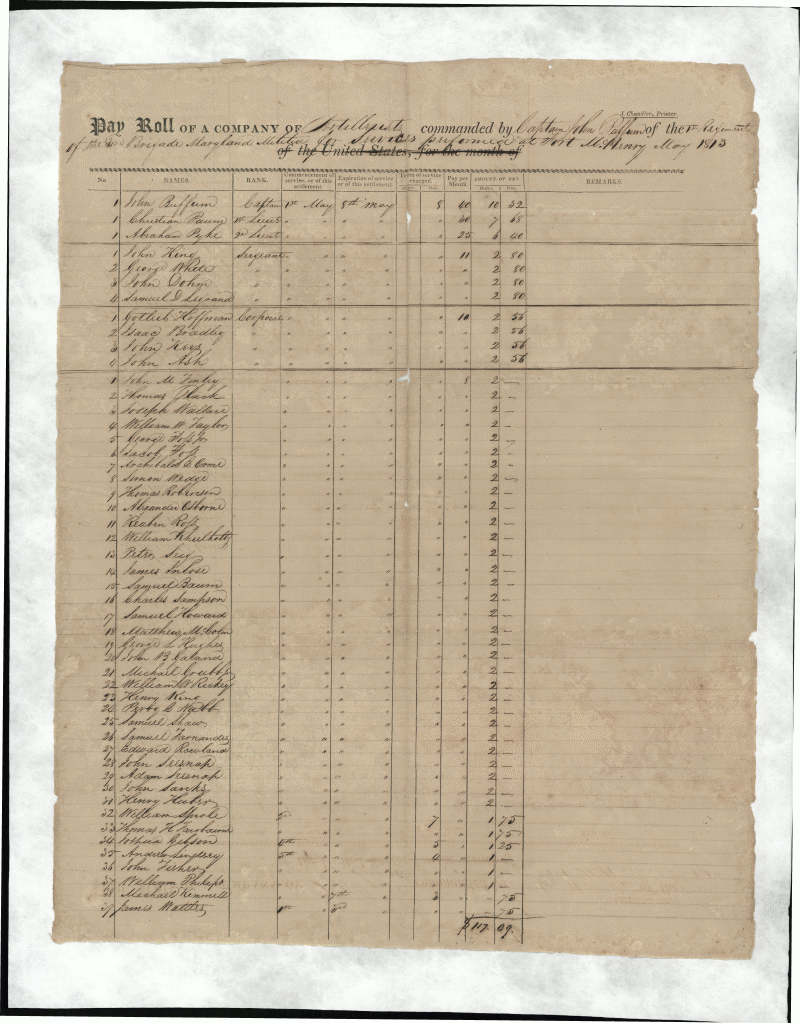 J. Chandler, Printer.
Pay Roll OF A COMPANY OF Artillerists commanded by Captain John of the 1st Regiment
of the Brigade Maryland Militia for Services performed at Fort McHenry May 1813
of the United States, for the month of
No. NAMES. RANK. Commencement of service, or of this settlement. Expiration of service or of this settlement. Term of service charged. Pay per Month AMOUNT OF PAY. REMARKS.
Dolls. Cts.
1 John Captain 1st May 8th May 8 40 10 32
1 Christian 1st Lieut " " " " 30 7 68
1 Abraham Pyke 2nd Lieut " " " " 25 6 40
1 John King Sergeant " " " " 11 2 80
2 George White " " " " " " 2 80
3 John Dohm " " " " " " 2 80
4 Samuel D Legrand " " " " " 2 80
1 Gotlieb Hoffman Corporal " " " " 10 2 56
2 Isaac Bradley " " " " " " 2 56
3 John " " " " " " 2 56
4 John Ash " " " " " " 2 56
1 John M Finley " " " " 8 2 —
2 Thomas " " " " " 2 —
3 Joseph Wallace " " " " " 2 —
4 William W Taylor " " " " " 2 —
5 George Foss Jr " " " " " 2 —
6 Jacob Foss " " " " " 2 —
7 Archibald " " " " " 2 —
8 Simon Wedge " " " " " 2 —
9 Thomas Roberson " " " " " 2 —
10 Alexander Osborne " " " " " 2 —
11 Reuben Ross " " " " " 2 —
12 William " " " " " 2 —
13 Peter " " " " " 2 —
14 James " " " " " 2 —
15 Samuel Baum " " " " " 2 —
16 Charles Sampson " " " " " 2 —
17 Samuel Howard " " " " " 2 —
18 Matthew " " " " " 2 —
19 George L Hughes " " " " " 2 —
20 John B " " " " " 2 —
21 Michael Grubb " " " " " 2 —
22 William W " " " " " 2 —
23 Henry King " " " " " 2 —
24 " " " " " 2 —
25 Samuel Shaw " " " " " 2 —
26 Samuel Fernandez " " " " " 2 —
27 Edward Rowland " " " " " 2 —
28 John " " " " " 2 —
29 Adam " " " " " 2 —
30 John Sanks " " " " " 2 —
31 Henry Huber " " " " " 2 —
32 William 2nd " " 7 " 1 75
33 Thomas H Fairbairn " " " " " 1 75
34 Joshua Gibson 4th " " 5 " 1 25
35 Andrew Lindsey 5th " " 4 " 1 —
36 John Fisher " " " " " 1 —
37 William Philips " " " " " 1 —
38 Michael Kimmell " 7th " 3 " 75
39 James 1st 3rd " " " 75
$117 09